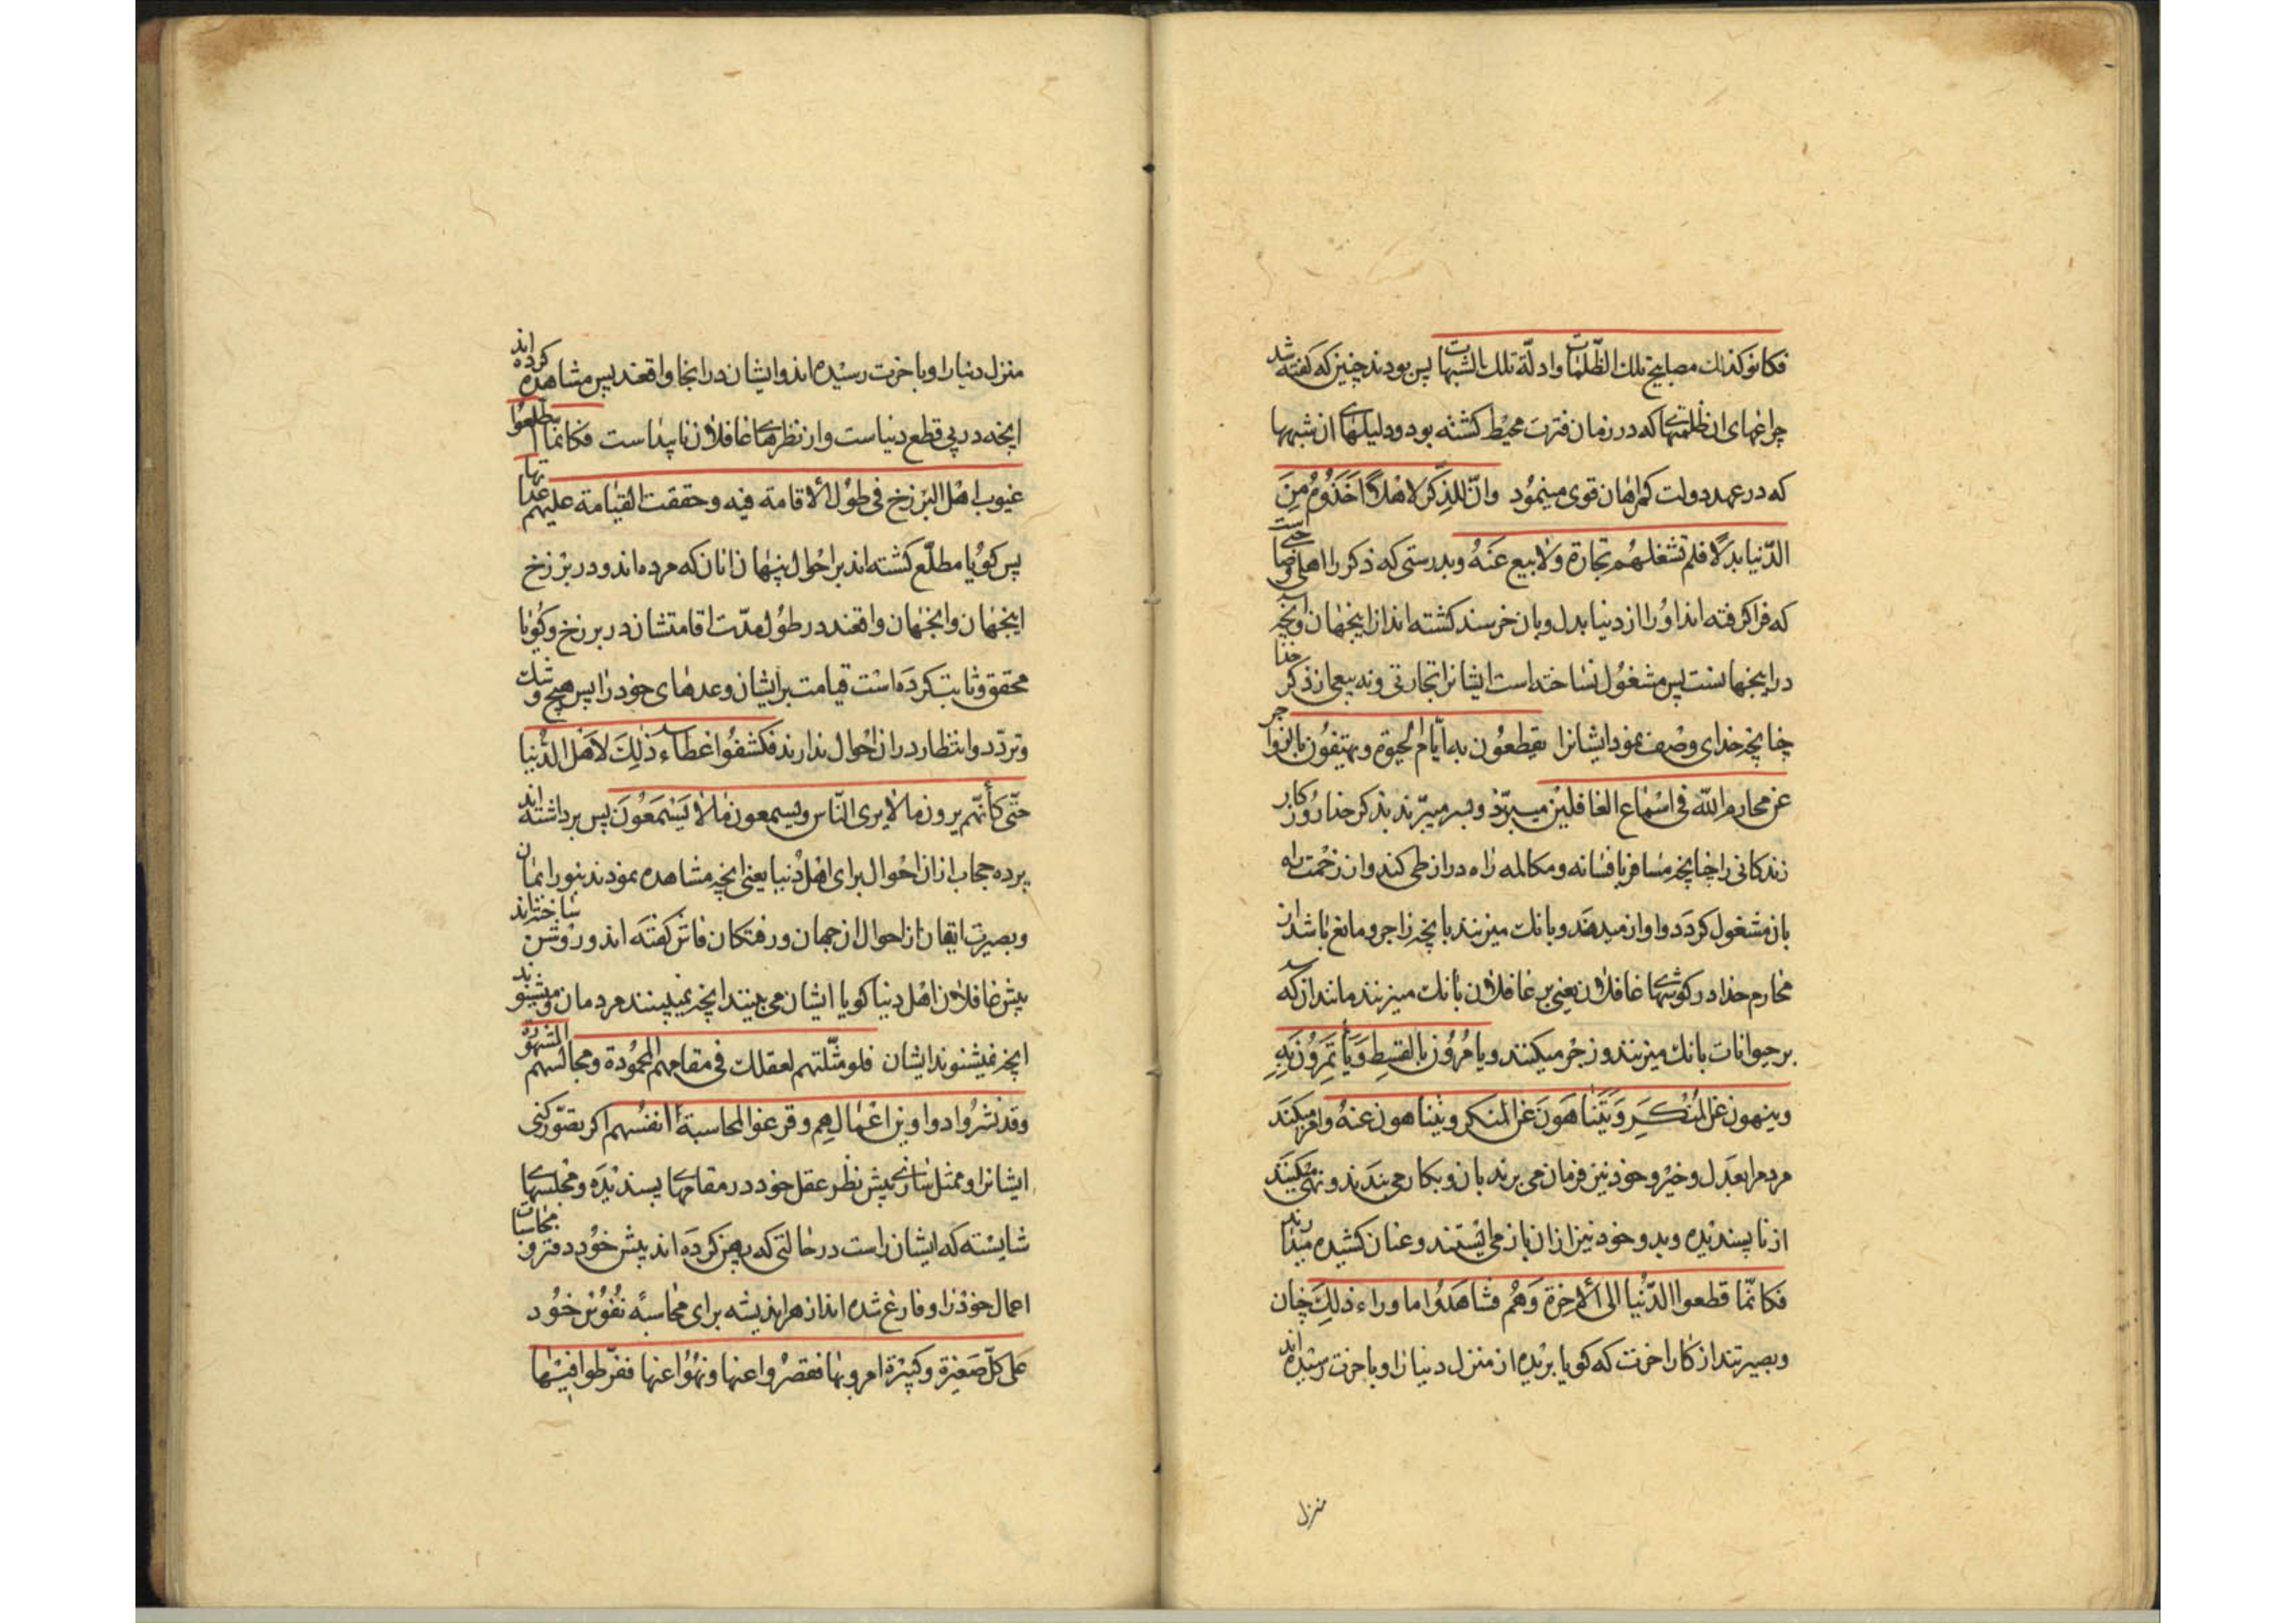 فکانو کذلك مصابیح تلك الظّلمات وادلّة تلك الشبهات پس بودند چنین که گفته شد
چراغهای ان ظلمتهای که در زمان فترت محیط کشته بود و دلیلهای ان شبهها
که در عهد دولت کمراهان قوی مینمود وانّ للذِّکر لاهْلاً اَخَذُوهُ مِنَ
الدّنیا بدلاً فلم تشغلهُم تجارة ولا بیع عَنهُ وبدرستی که ذکر را اهلی خاصّی است
که فرا کرفته اند اورا از دنیا بدل وبان خرسند کشته اند از اینجهان وانچه
در اینجهانست پس مشغول نساخته است ایشانرا تجارتی ونه بیعی از ذکر خدا
چنانچه خدای وصف نمود ایشانرا یقطعُون به ایّام الحیوة ویهتفُون بالزواجر
عن محارم الله فی اسْماع الغافلین میبرّند وبسر میبرّند بذکر خدا روزکار
زندکانی را چنانچه مسافر بافسانه ومکالمه راه دراز طی کند وان زحمت راه
بان مشغول کردد واواز میدهند وبانك میزنند بانچه زاجر ومانع باشد از
محارم خدا در کوشهای غافلان یعنی بر غافلان بانك میزنند مانند انکه
بر حیوانات بانك میزنند وزجر میکنند ویامُرُون بالقسِط وَیأتمِرُون بِهِ
وینهون عَن المُنْکَرِ وَیَتَناهَونَ عَن المنکر ویتناهون عنهُ وامر میکنند
مردم را بعدل وخیر وخود نیز فرمان می برند بان وبکار می بندند ونهی میکنند
از ناپسندیده وبد وخود نیز از ان باز می ایستند وعنان کشیده میدارند
فکانّما قطعوا الدّنیا الی الاخِرَة وَهُم فشاهَدُوا ما وراء ذلِك چنان
وبصیرتند از کار اخرت که کویا بریده اند منزل دنیا را وباخرت رسیده اند
منزل
منزل دنیا را وباخرت رسیده اند وایشان در انجا واقعند پس مشاهده کرده اند
انچه در پی قطع دنیاست واز نظرهای غافلان ناپیداست فکانما اطّلعُوا
غیوب اهل البرزخ فی طوُل الاقامة فیه وحققت القیامة علیهم عداتها
پس کویا مطلّع کشته اند بر احوال پنهان انان که مرده اند ودر برزخ
اینجهان وانجهان واقعند در طول مدّت اقامتشان در برزخ وکویا
محقق وثابت کرده است قیامت برایشان وعدهای خود را پس هیچ شك و
وتردّد وانتظار در ان احوال ندارند فکشفُوا غطاء ذلِكَ لاهْل الدُّنیا
حتّی کأنّهم یرون ما لا یری النّاس ویسمعون ما لا یَسْمَعُونَ پس برداشته اند
پرده حجاب از ان احوال برای اهل دنیا یعنی انچه مشاهده نمودند بنور ایمان
وبصیرت ایقان از احوال ان جهان ورفتکان فاش کفته اند وروشن ساخته اند
پیش غافلان اهل دنیا کویا ایشان می بینند انچه نمیبینند مردمان ومیشنوند
انچه نمیشنوند ایشان فلو مثّلتهم لعقلك فی مقامهم المحمُودة ومجالسهم المشهودة
وقد نشرُوا دواوین اعْمالهِم وفرغوا لمحاسبة انفسهم اکر تصوّر کنی
ایشانرا وممثل سازی پیش نظر عقل خود در مقامهای پسندیده ومجلسهای
شایسته که ایشان راست در حالتی که پهن کرده اند پیش خود دفتر و محاسبات
اعمال خود را وفارغ شده اند از هر اندیشه برای محاسبهٔ نفوس خود
عَلی کلّ صَغیرة وکبیرة امروا بها فقصرُوا عنها ونهُوا عنها ففرّطوا فیها